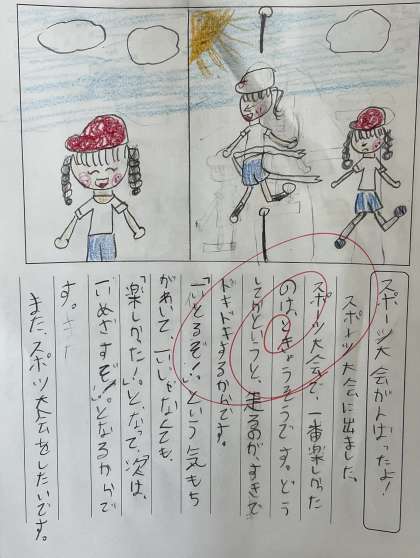 スポーツ大会がんばったよ!
スポーツ大会に出ました。
スポーツ大会で、一番楽しかった
のは、ときょうそうです。どう
してかというと、走るのが、すきで
ドキドキするからです。
「一いとるぞ!」。という気もち
があいて、一いじゃなくても、
「楽しかった!」。と、なって、次は、
一いめざすぞ!」。となるからで
す。
また、スポーツ大会をしたいです。